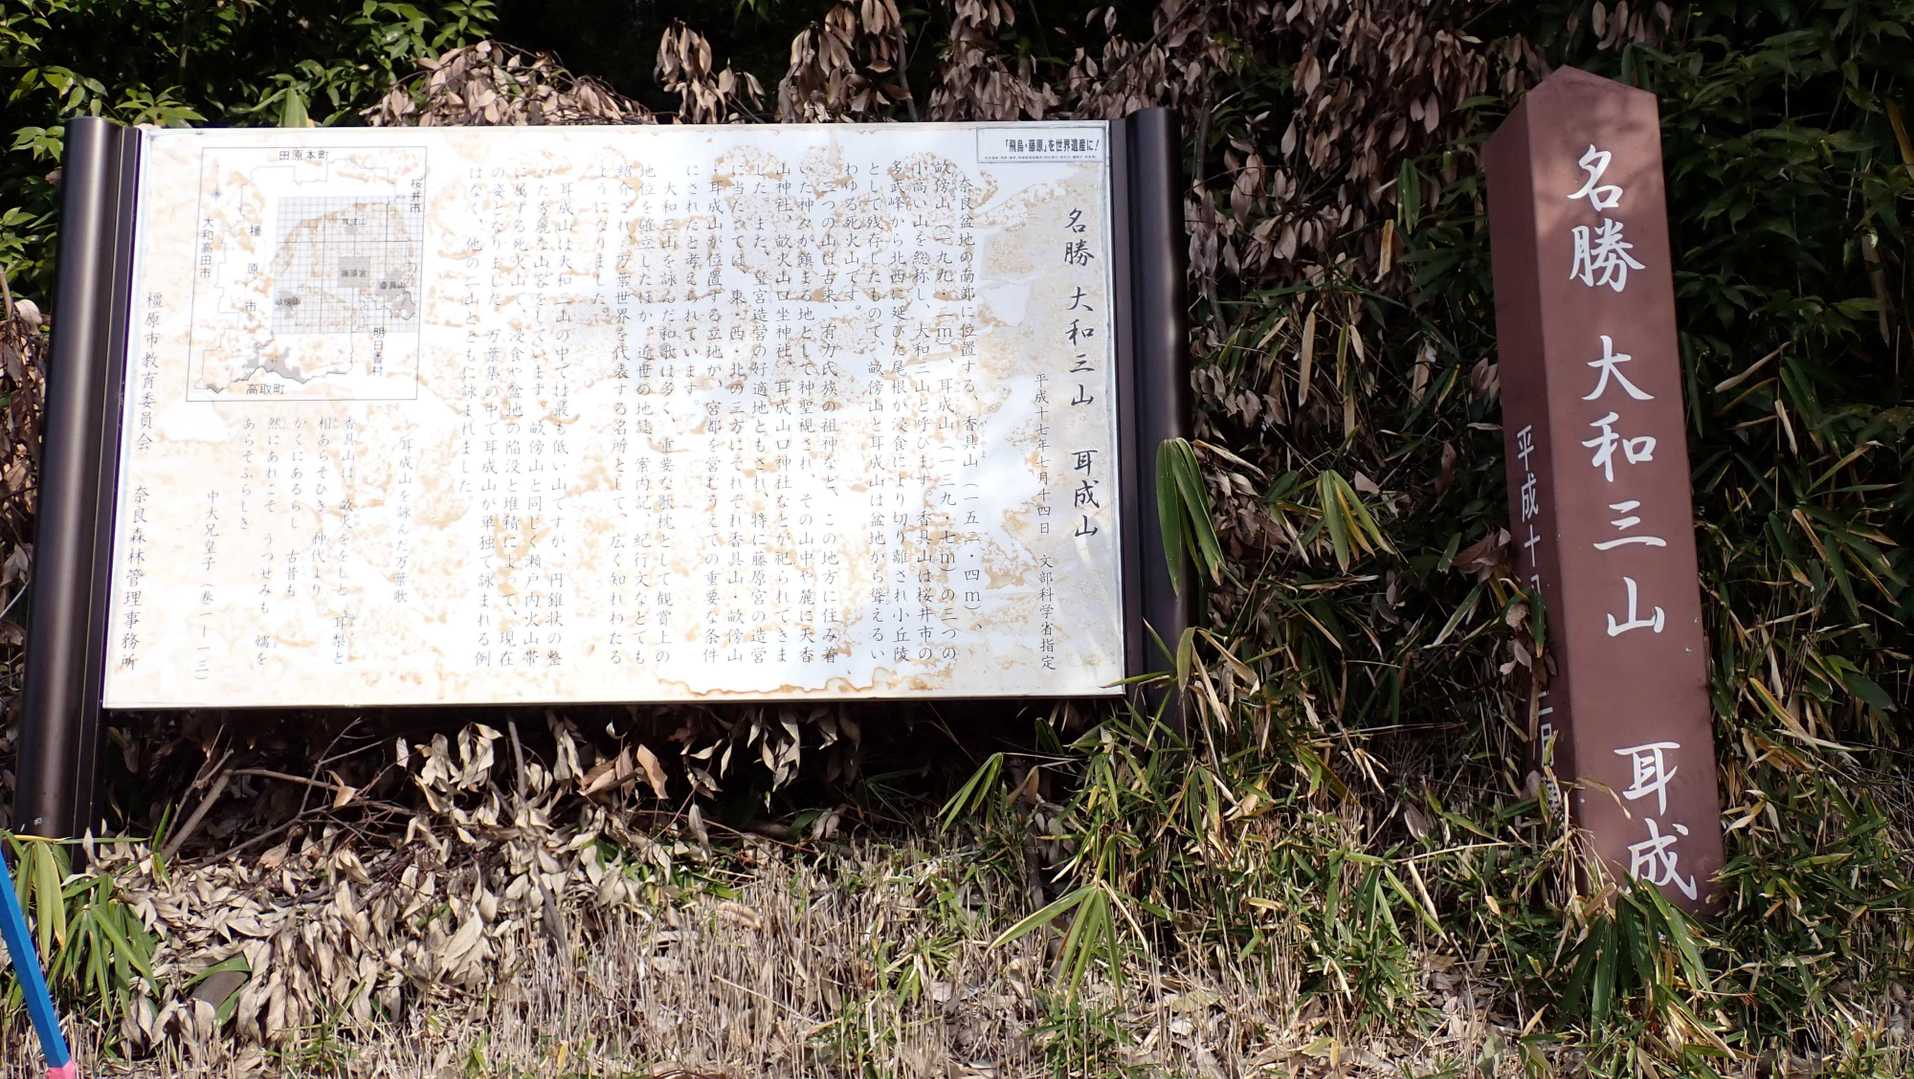 「飛鳥・藤原」を世界遺産に!
名勝 大和三山 耳成山
平成十七年七月十四日 文部科学省指定
奈良盆地の南部に位置する、香具山(一五二・四m)、
畝傍山(一九九・二m)、耳成山(一三九・七m)の三つの
小高い山を総称し、大和三山と呼びます。香具山は桜井市の
多武峰から北西に延びた尾根が浸食により切り離され小丘陵
として残存したもので、畝傍山と耳成山は盆地から聳えるい
わゆる死火山です。
三つの山は古来、有力氏族の祖神など、この地方に住み着
いた神々が鎮まる地として神聖視され、その山中や麓に天香
山神社、畝火山口坐神社、耳成山口神社などが祀られてきま
した。また、皇宮造営の好適地ともされ、特に藤原宮の造営
に当たっては、東・西・北の三方にそれぞれ香具山・畝傍山
・耳成山が位置する立地が、宮都を営むうえでの重要な条件
にされたと考えられています。
大和三山を詠んだ和歌は多く、重要な歌枕として観賞上の
地位を確立したほか、近世の地誌、案内記、紀行文などでも
紹介され、万葉世界を代表する名所として、広く知れわたる
ようになりました。
耳成山は大和三山の中では最も低い山ですが、円錐状の整
った秀麗な山容をしています。畝傍山と同じく瀬戸内火山帯
に属する死火山で、浸食や盆地の陥没と堆積によって、現在
の姿となりました。万葉集の中で耳成山が単独で詠まれる例
はなく、他の二山とともに詠まれました。
耳成山を詠んだ万葉歌
香具山は 畝火ををしと 耳梨と
相あらそひき 神代より
かくにあるらし 古昔も
然にあれこそ うつせみも 嬬を
あらそふらしき
中大兄皇子 (巻一―一三)
橿原市教育委員会
奈良森林管理事務所
田原本町
桜井市
大和高田市
橿原市
耳成山
藤原宮
香具山
畝傍山
明日香村
高取町
名勝 大和三山 耳成
平成十